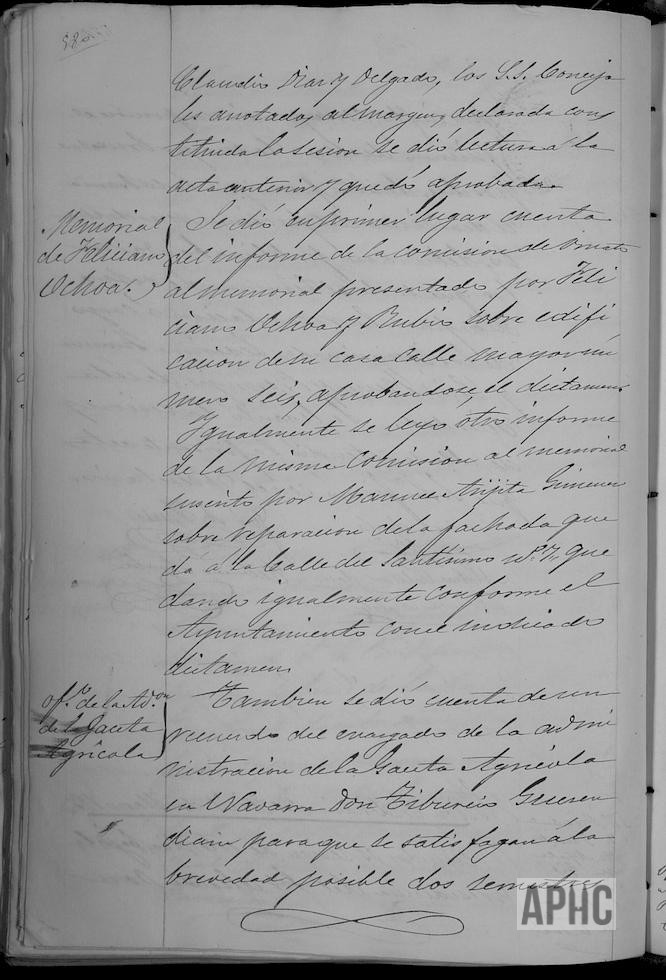 Claudio Diaz y Delgado, los S.S. Conceja
les anotados al margen, declarada cons
tituida la sesion se dió lectura á la
acta anterior y quedó aprobada.
Memorial
de Feliciano
Ochoa.
Se dió en primer lugar cuenta
del informe de la comision de Ornato
al memorial presentado por Feli
ciano Ochoa y Rubio sobre edifi
cacion de su casa calle mayor nu
mero seis, aprobandose el dictamen.
Ygualmente se leyó otro informe
de la misma comision al memorial
suscrito por Gimenez
sobre reparacion de la fachada que
dá á la Calle del Santísimo nº 7, que
dando igualmente conforme el
Ayuntamiento con el indicado
dictamen.
ofº de la Adon
de la Gaceta
Agrícola
Tambien se dió cuenta de un
recuerdo del encargado de la admi
nistracion de la Gaceta Agrícola
en Navarra Don Tiburcio Gueren
diain para que se satisfagan á la
brevedad posible dos semestres
APHC